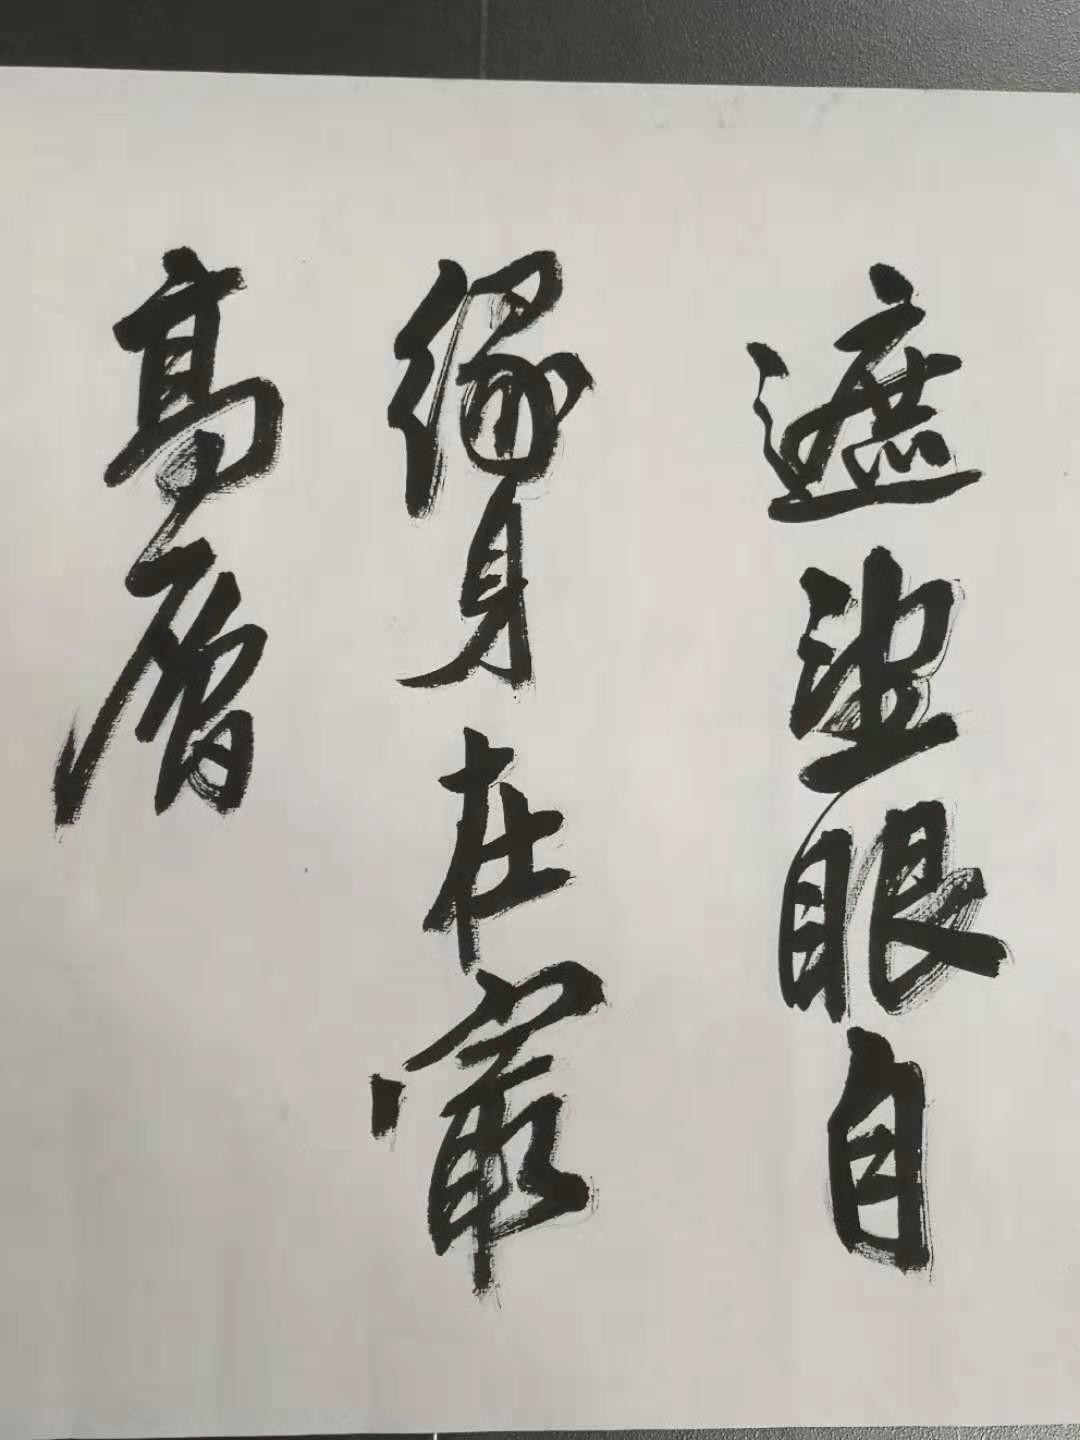 遮望眼自
缘身在最
高層